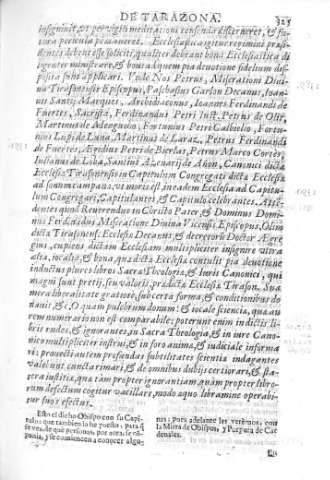 DE TARAZONA. 325
insigniuit, & peruigili meditationi censenda discerneret, & fu-
tura pericula præcaueret. Ecclesiastica igitur regimini præsi-
dentes debent esse soliciti, qualiter debeant bona Ecclesiastica di-
ligenter ministrare, & bona aliquem pia deuotione fidelium dis-
posita sunt applicari. Vnde Nos Petrus, Miseratione Diui-
na Tirasonensis Episcopus, Paschasius Garlon Decanus, Ioan-
nis Santij Marques, Archidiaconus, Ioannis Ferdinandi de
Fuertes, Sacrista, Ferdinandus Petri Inst. Petrus de Olir,
Martinus de Aldeguelo, Fortunius Petri Calbielio, Fortu-
nius Lupi de Luna, Martinus de Laraz, Petrus Ferdinandi
de Fuertes, Petri de Berlat, Petrus Marco Cortes,
Iulianus de Loba, Santius de Ahon, Canonici dictæ
Ecclesiæ Tirasonensis in Capitulum Congregati dicta Ecclesia
ad sonum campanæ, vt moris est in eadem Ecclesia ad Capitu-
lum Congregari, Capitulantes, & Capitulo celebrantes. Atten-
dentes quod Reuerendus in Christo Pater, & Dominus Domi-
nus Ferdinandus, Miseratione Diuina Vicensis Episcopus, Olim
dictæ Tirasonens. Ecclesiæ Decanus, & decretorum Doctor
cupiens dictam Ecclesiam multipliciter insignire vtira
alia, iocalia, & bona, quæ dicta Ecclesia contulit pia deuotione
inductus plures libros Sacræ Theologiæ, & Iuris Canonici, qui
magni sunt pretij, seu valoris, prædictæ Ecclesiæ Tirason. Sua
mera liberalitate gratiose, sub certa forma, & conditionibus do-
nauit &c. O quam pulchrum donum! & iocale scientia, qua au-
rem numerorum non est comparabile; poterunt enim in dictis li-
bris rudes, & ignorantes, in Sacra Theologia, & in iure Cano-
nico multipliciter instrui, & in foro anima, & iudiciale informa
ri: prouecti autem profundas subtilitates scientia indagantes
valebunt cuncta rimari, & de omnibus dubijs certiorari, & sta-
gera insistit, qua tam propter ignorantiam, quam propter libro-
rum defectum cogitur vacillare, modo aliquo libramine operabi-
tur suos effectus.
Esto el dicho Obispo con su Capi-
tulo; que tambien lo he puesto, para q̃
se vean de que personas, por aora, se cõ-
ponia, y se comiencen a conocer algu-
nos; para adelante les veremos, con
la Mitra de Obispos, y Purpura de Car-
denales.